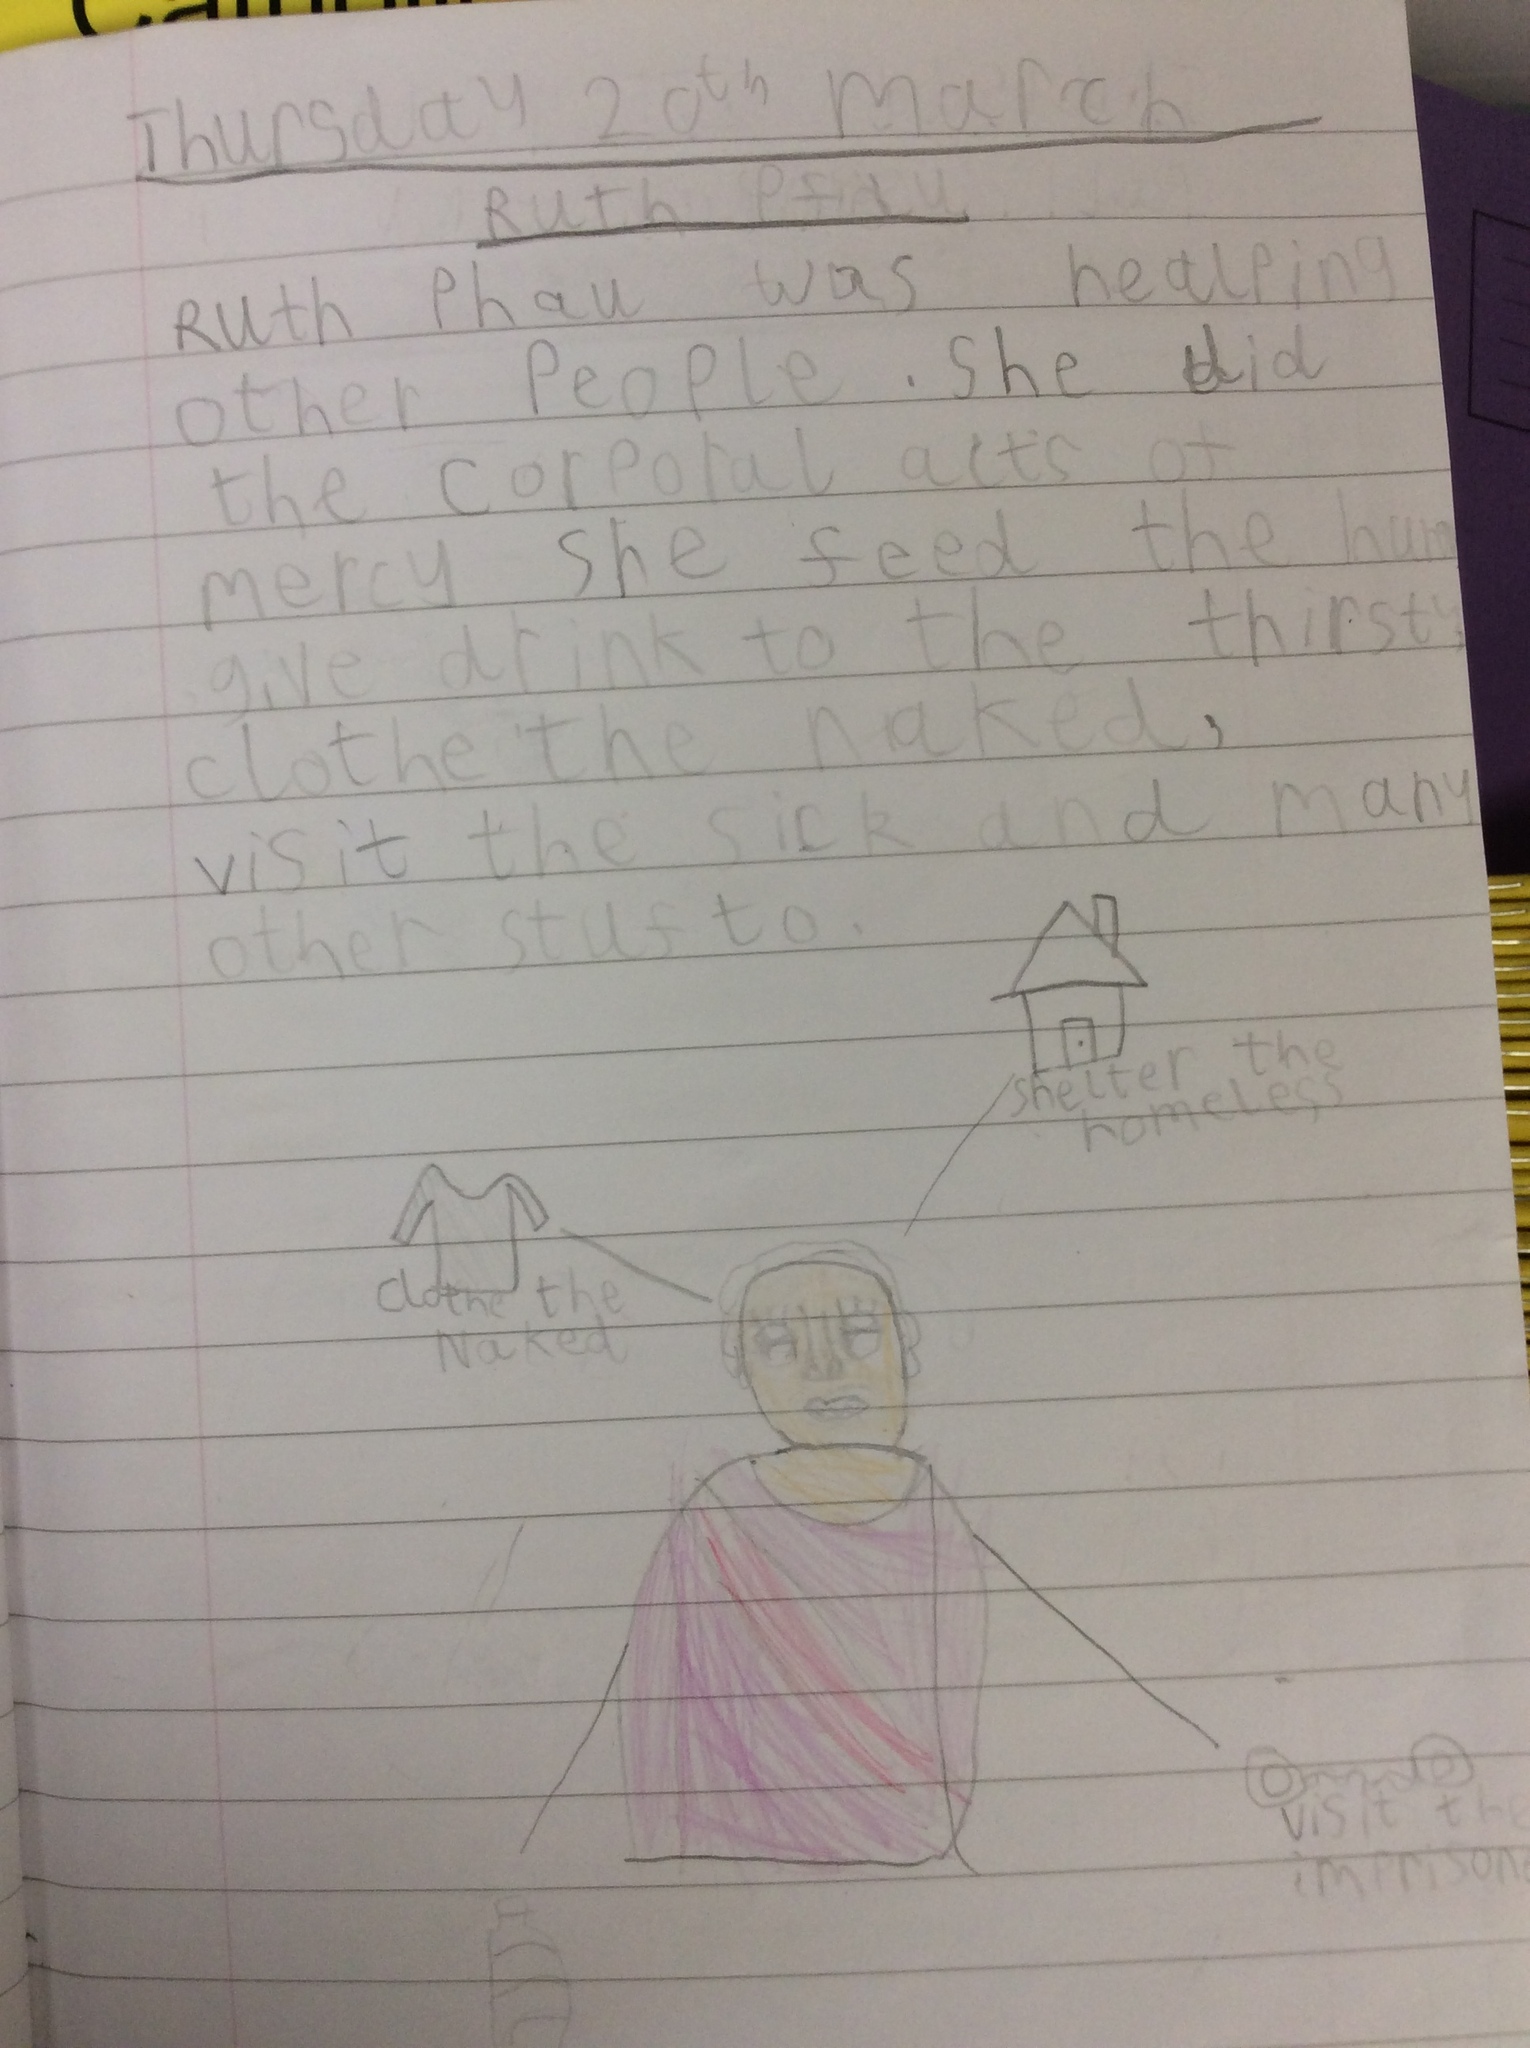 Thursday 20th march
Ruth Pfau
Ruth Phau was healping
other People. She did
the corporal acts of
mercy she feed the hun
give drink to the thirsty,
clothe the naked,
visit the sick and many
other stuf to.
shelter the
homeless
clothe the
Naked
visit the
imprisone